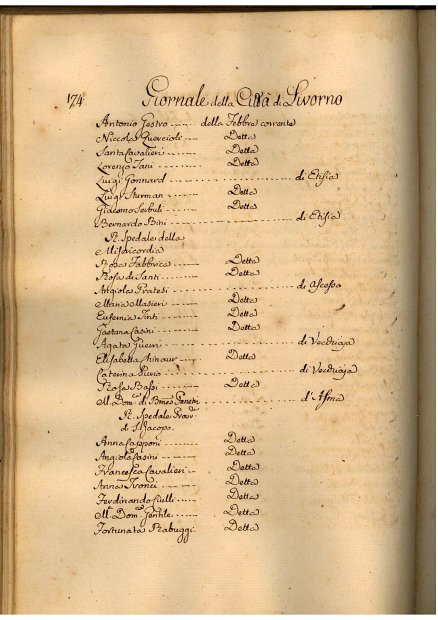 174 Giornale della Città di Livorno
Antonio Gestro ...... della Febbre corrente
Niccola Guercioli ... Detta
Santa Cavalieri ...... Detta
Lorenzo Tani ...... Detta
Luigi Gonnard ...... di Etisia
Luigi Thurman ...... Detta
Giacomo Serbuli ...... Detta
Bernardo Bini ...... di Etisia
R. Spedale della
Misericordia
Rosa Fabbrica ...... Detta
Rosa di Santi ...... Detta
Angiola Pratesi ...... di Ascesso
Maria Masieri ...... Detta
Eufemia Tinti ...... Detta
Gaetana Casini ...... Detta
Agata Guerri ...... di Vecchiaja
Elisabetta ...... Detta
Caterina ...... di Vecchiaja
Rosa Bassi ...... Detta
M. Dom.ca di ...... d'Asma
R. Spedale Prov.
di S. Jacopo
Anna Capponi ...... Detta
Angiola Casini ...... Detta
Francesca Cavalieri .. Detta
Anna ...... Detta
Ferdinando Ciulli ... Detta
M. Dom.ca Gentile ... Detta
Fortunata Rabuggi. Detta